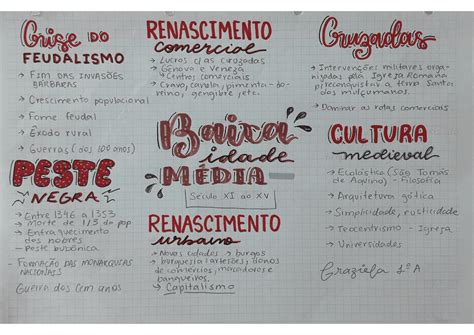 Crise DO
FEUDALISMO
→ FIM DAS INVASÕES
BÁRBARAS
→ Crescimento populacional
→ Fome feudal
→ Êxodo rural
→ Guerras (dos 100 anos)
RENASCIMENTO
comercial
→ Lucros c/ as cruzadas
→ Gênova e Veneza
↳ Centros comerciais
→ Cravo, canela, pimenta-do-
reino, gengibre, etc.
Cruzadas
→ Intervenções militares orga-
nizadas pela Igreja Romana
p/reconquistar a terra Santa
dos mulçumanos.
→ Dominar as rotas comerciais
Baixa
idade
MÉDIA
Século XI ao XV
PESTE
NEGRA
→ Entre 1346 a 1353
→ Morte de 1/3 da pop.
→ Enfraquecimento
dos nobres
→ Peste bubônica
- FORMAÇÃO DAS MONARQUIAS
NACIONAIS
Guerra dos Cem anos
RENASCIMENTO
urbano
→ Novas cidades → burgos
→ burguesia (artesões, donos
de comércios, mercadores e
banqueiros.
↳ Capitalismo
CULTURA
medieval
→ Escolástica (São Tomás
de Aquino) - Filosofia
→ Arquitetura gótica
→ Simplicidade, rusticidade
→ Teocentrismo - Igreja
→ Universidades
Graziela 1°A